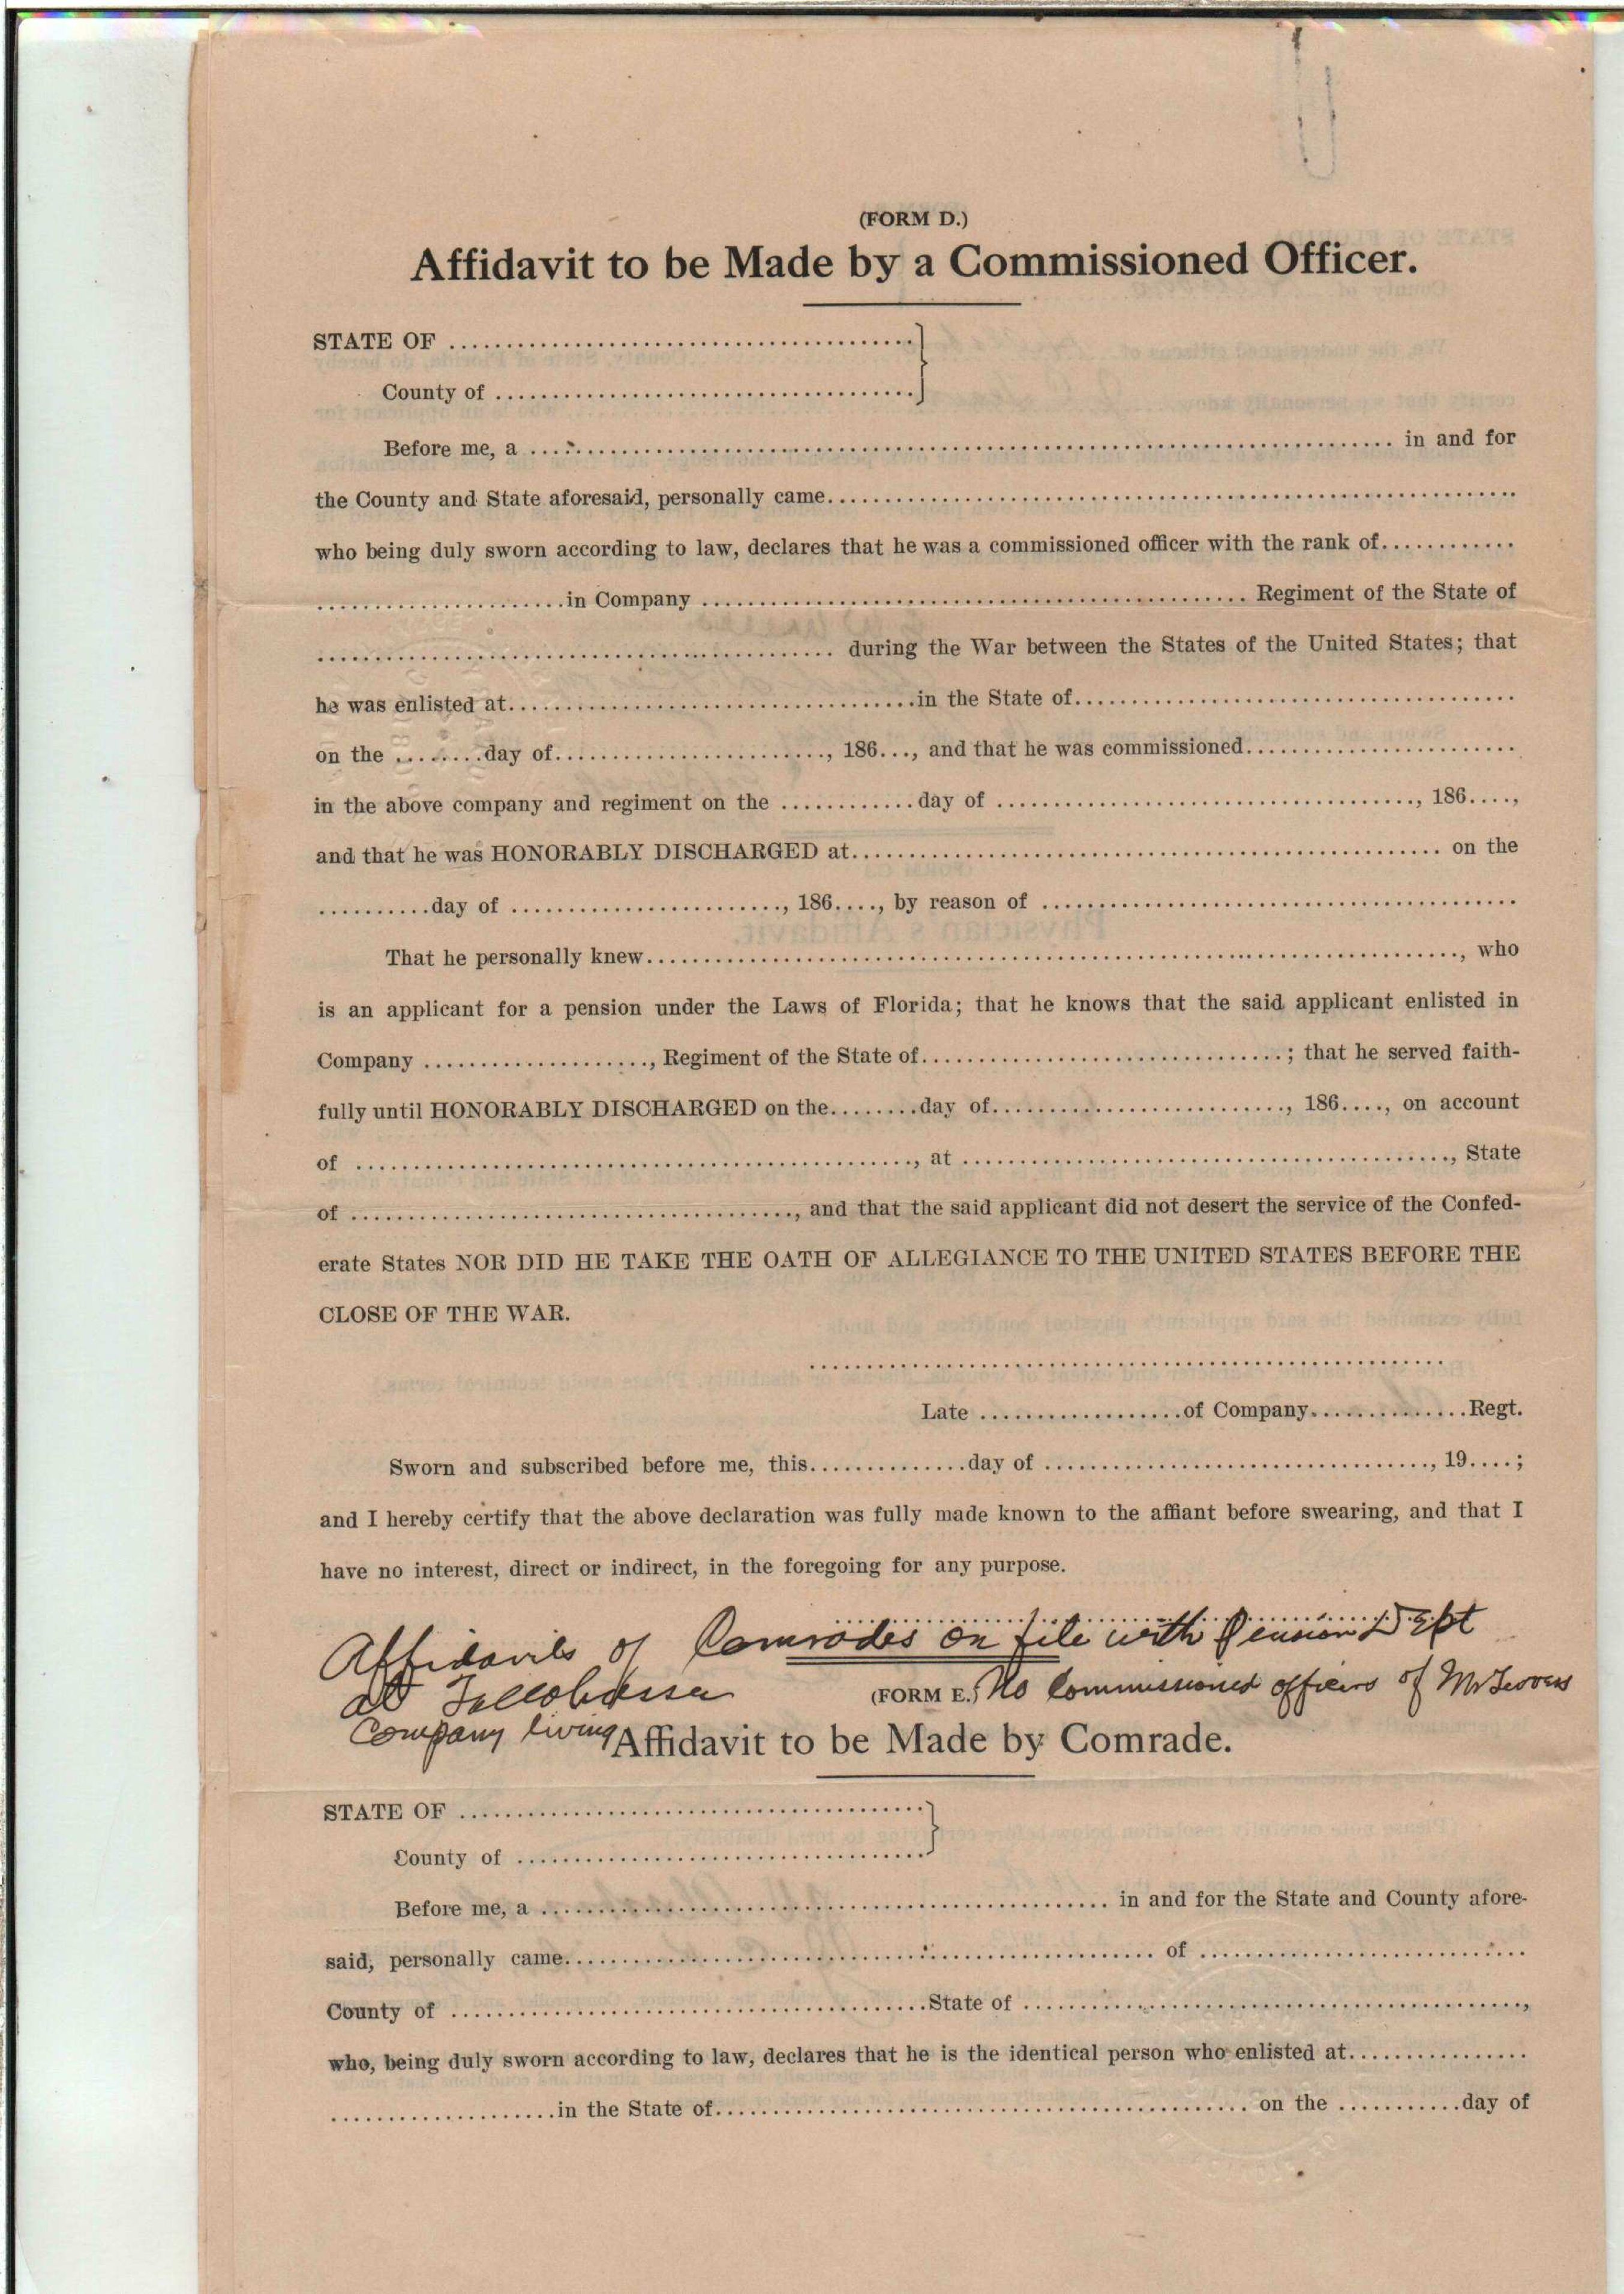 (FORM D.)
Affidavit to be Made by a Commissioned Officer.
STATE OF ........................................
County of ........................................
Before me, a ........................................ in and for
the County and State aforesaid, personally came........................................
who being duly sworn according to law, declares that he was a commissioned officer with the rank of............
......................in Company ........................................ Regiment of the State of
........................................ during the War between the States of the United States; that
he was enlisted at........................................in the State of........................................
on the ........day of........................, 186..., and that he was commissioned........................
in the above company and regiment on the ............day of ...................................., 186....,
and that he was HONORABLY DISCHARGED at........................................ on the
..........day of ........................, 186...., by reason of ........................................
That he personally knew........................................, who
is an applicant for a pension under the Laws of Florida; that he knows that the said applicant enlisted in
Company ...................., Regiment of the State of................................; that he served faith-
fully until HONORABLY DISCHARGED on the........day of.........................., 186...., on account
of ........................................, at ........................................, State
of ........................................, and that the said applicant did not desert the service of the Confed-
erate States NOR DID HE TAKE THE OATH OF ALLEGIANCE TO THE UNITED STATES BEFORE THE
CLOSE OF THE WAR.
........................................
Late ..................of Company..............Regt.
Sworn and subscribed before me, this..............day of ................................, 19....;
and I hereby certify that the above declaration was fully made known to the affiant before swearing, and that I
have no interest, direct or indirect, in the foregoing for any purpose.
........................................
Affidavits of Comrades on file with Pension Dept
at Tallahassee
(FORM E.) No Commissioned officers of Mr
Company living
Affidavit to be Made by Comrade.
STATE OF ........................................
County of ........................................
Before me, a ........................................ in and for the State and County afore-
said, personally came........................................ of ............................
County of ........................................State of ........................................,
who, being duly sworn according to law, declares that he is the identical person who enlisted at................
....................in the State of........................................ on the ...........day of